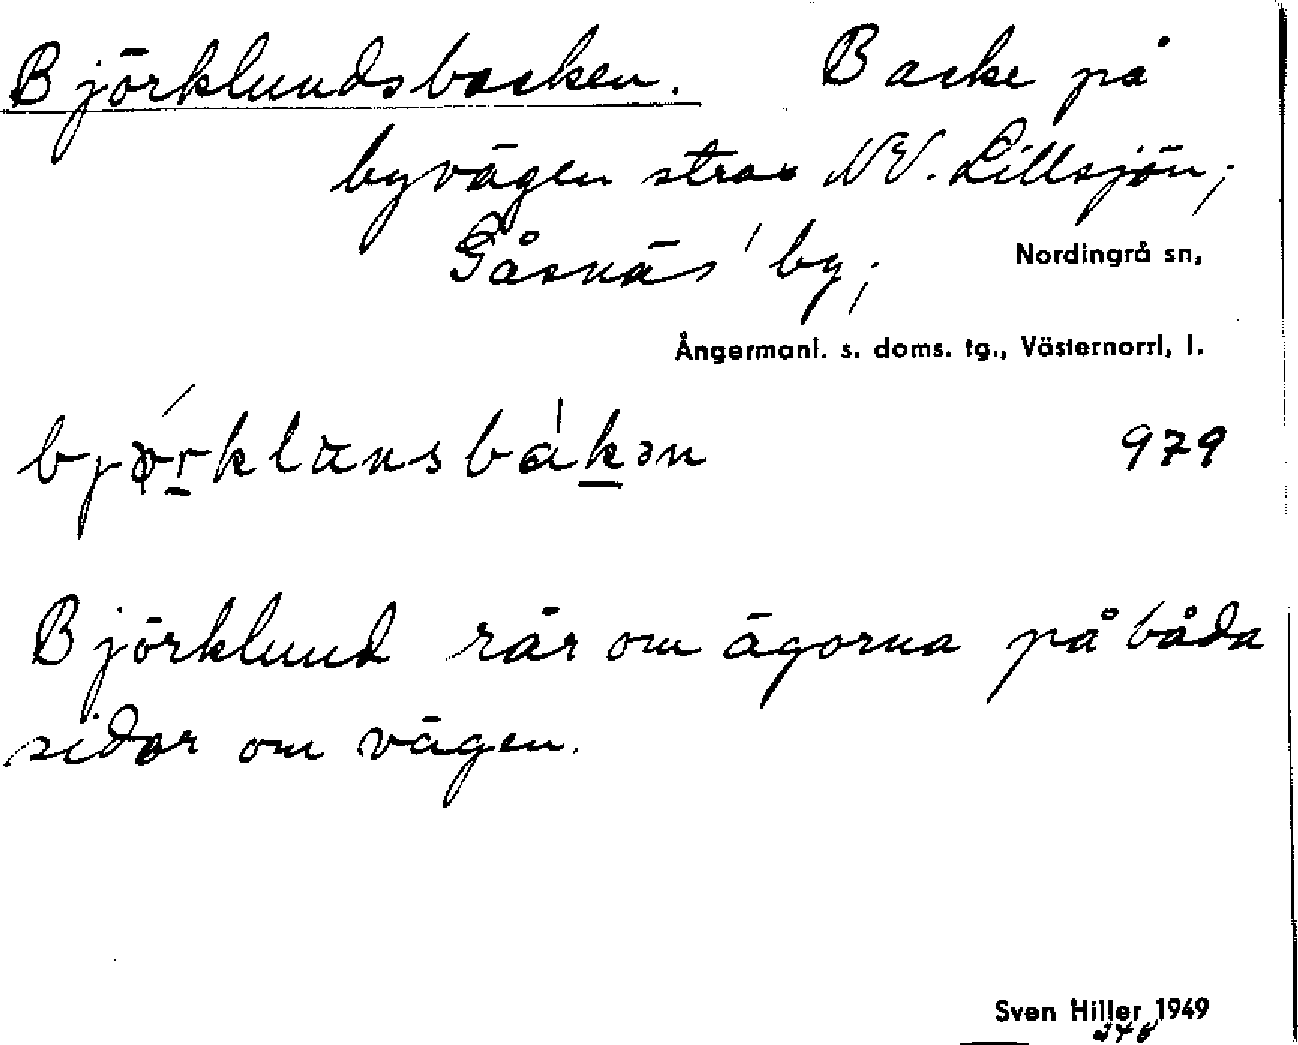 Björklundsbacken. Backe på
byvägen strax NV. Lillsjön;
Gåsnäs' by; Nordingrå sn,
Ångermanl. s. doms. tg., Västernorrl. l.
bjørklunsbákən 979
Björklund rår om ägorna på båda
sidor om vägen.
Sven Hiller 1949
248